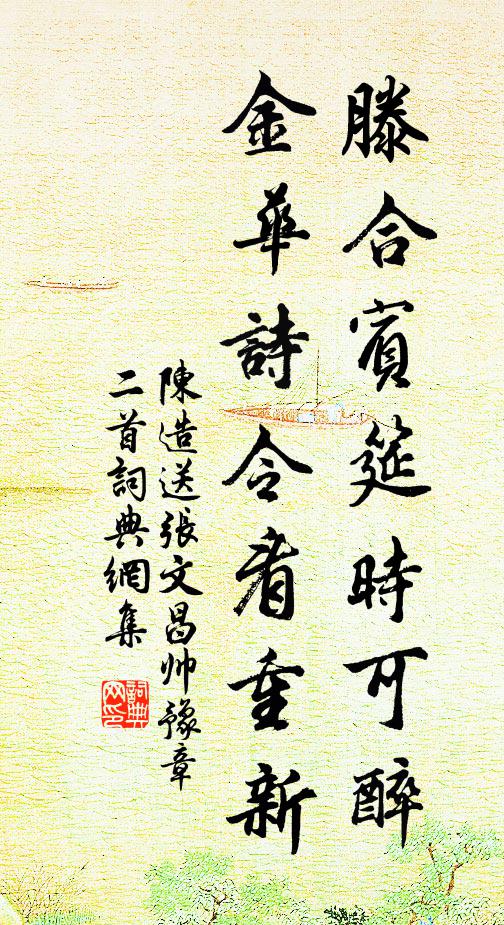 滕合賓筵時可醉
金華詩令看重新
陳造送張文昌帅豫章
二首詞典網集
詞典
网印